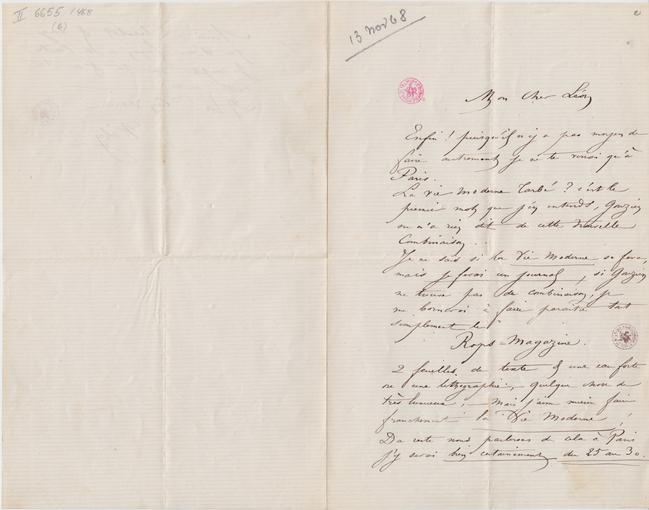 II 6655 / 468
(6)
13 nov 68
Mon Cher Léon
Enfin ! puisqu'il n'y a pas moyen de
faire autrement je ne te verrai qu'à
Paris.
La Vie Moderne Tarbé ? c'est le
premier mot que j'en entends, Gouzien
ne m'a rien dit de cette nouvelle
Combinaison.
Je ne sais si la Vie Moderne se fera,
mais je ferai un journal, si Gouzien
ne trouve pas de combinaison, je
me bornerai à faire paraître tout
simplement le
Rops-Magazine.
2 feuilles de texte & une eau forte
ou une lithographie, quelque chose de
très luxueux, – Mais j'aime mieux faire
franchement la Vie Moderne !
Du reste nous parlerons de cela à Paris
j'y serai bien certainement du 25 au 30.